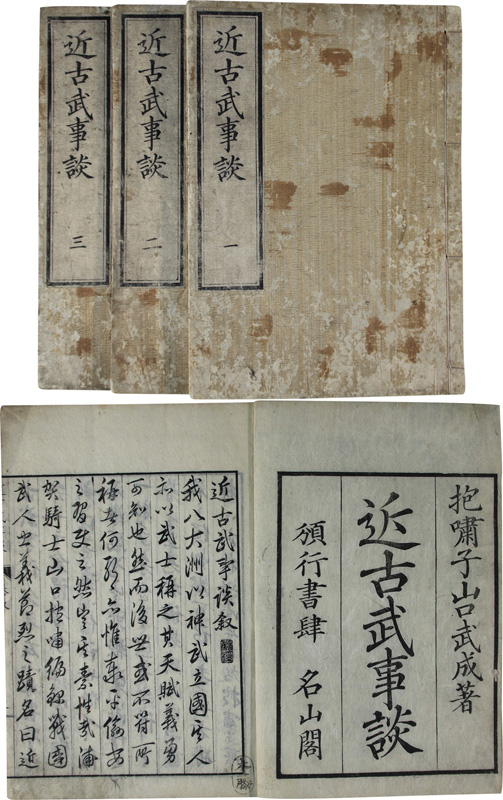 近古武事談 一
近古武事談 二
近古武事談 三
抱嘯子山口武成著
近古武事談
頒行書肆 名山閣
近古武事談叙
我八大洲以神武立國其人
亦以武士稱之其天賦義勇
可知也然而後世或不符所
稱者何歟亦惟泰平偷安
之習使之然豈其素性哉浦
賀騎士山口抱嘯編録戰國
武人忠義節烈之蹟名曰近